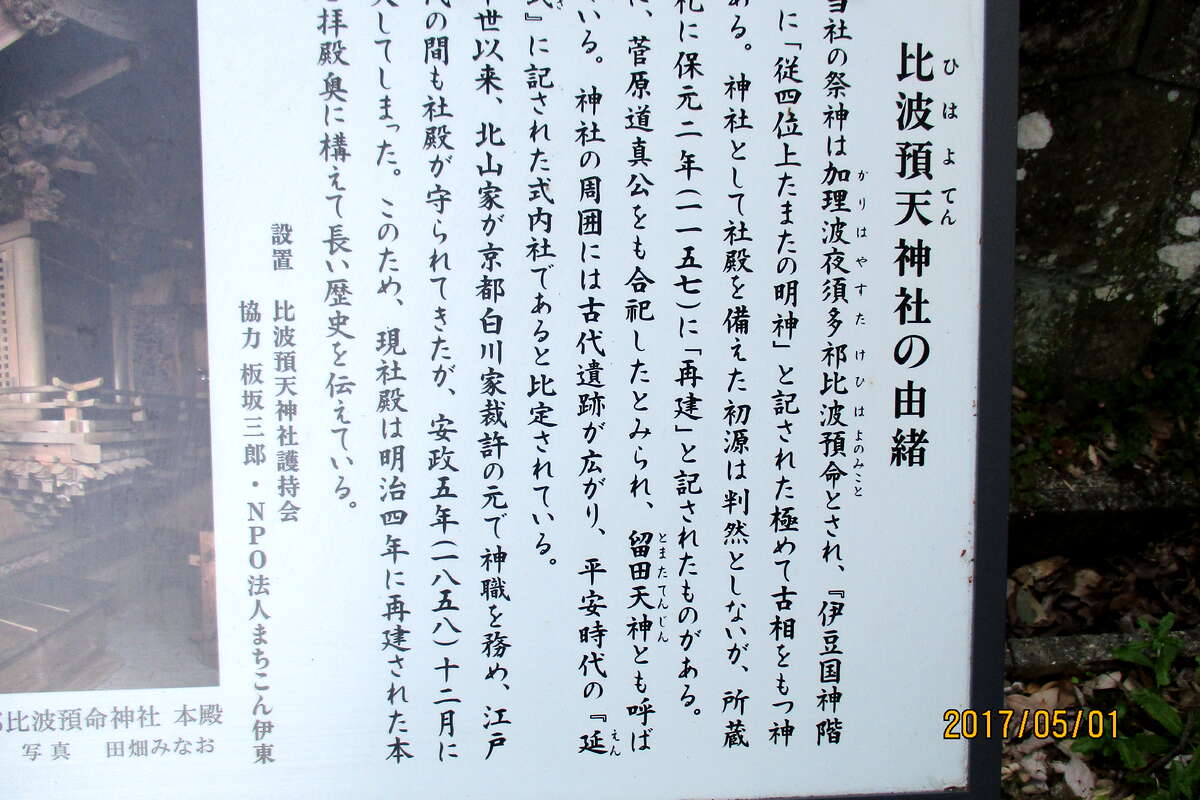 比波預天神社の由緒
ひはよてん
当社の祭神は加理波夜須多祁比波預命とされ、『伊豆国神階
かりはやすたけひはよのみこと
に「従四位上たまたの明神」と記された極めて古相をもつ神
ある。神社として社殿を備えた初源は判然としないが、所蔵
札に保元二年(一一五七)に「再建」と記されたものがある。
に、菅原道真公をも合祀したとみられ、留田天神とも呼ば
とまたてんじん
いる。神社の周囲には古代遺跡が広がり、平安時代の『延
えん
式』に記された式内社であると比定されている。
世以来、北山家が京都白川家裁許の元で神職を務め、江戸
代の間も社殿が守られてきたが、安政五年(一八五八)十二月に
失してしまった。このため、現社殿は明治四年に再建された本
と拝殿奥に構えて長い歴史を伝えている。
設置 比波預天神社護持会
協力 板坂三郎・NPO法人まちこん伊東
比波預命神社 本殿
写真 田畑みなお
2017/05/01